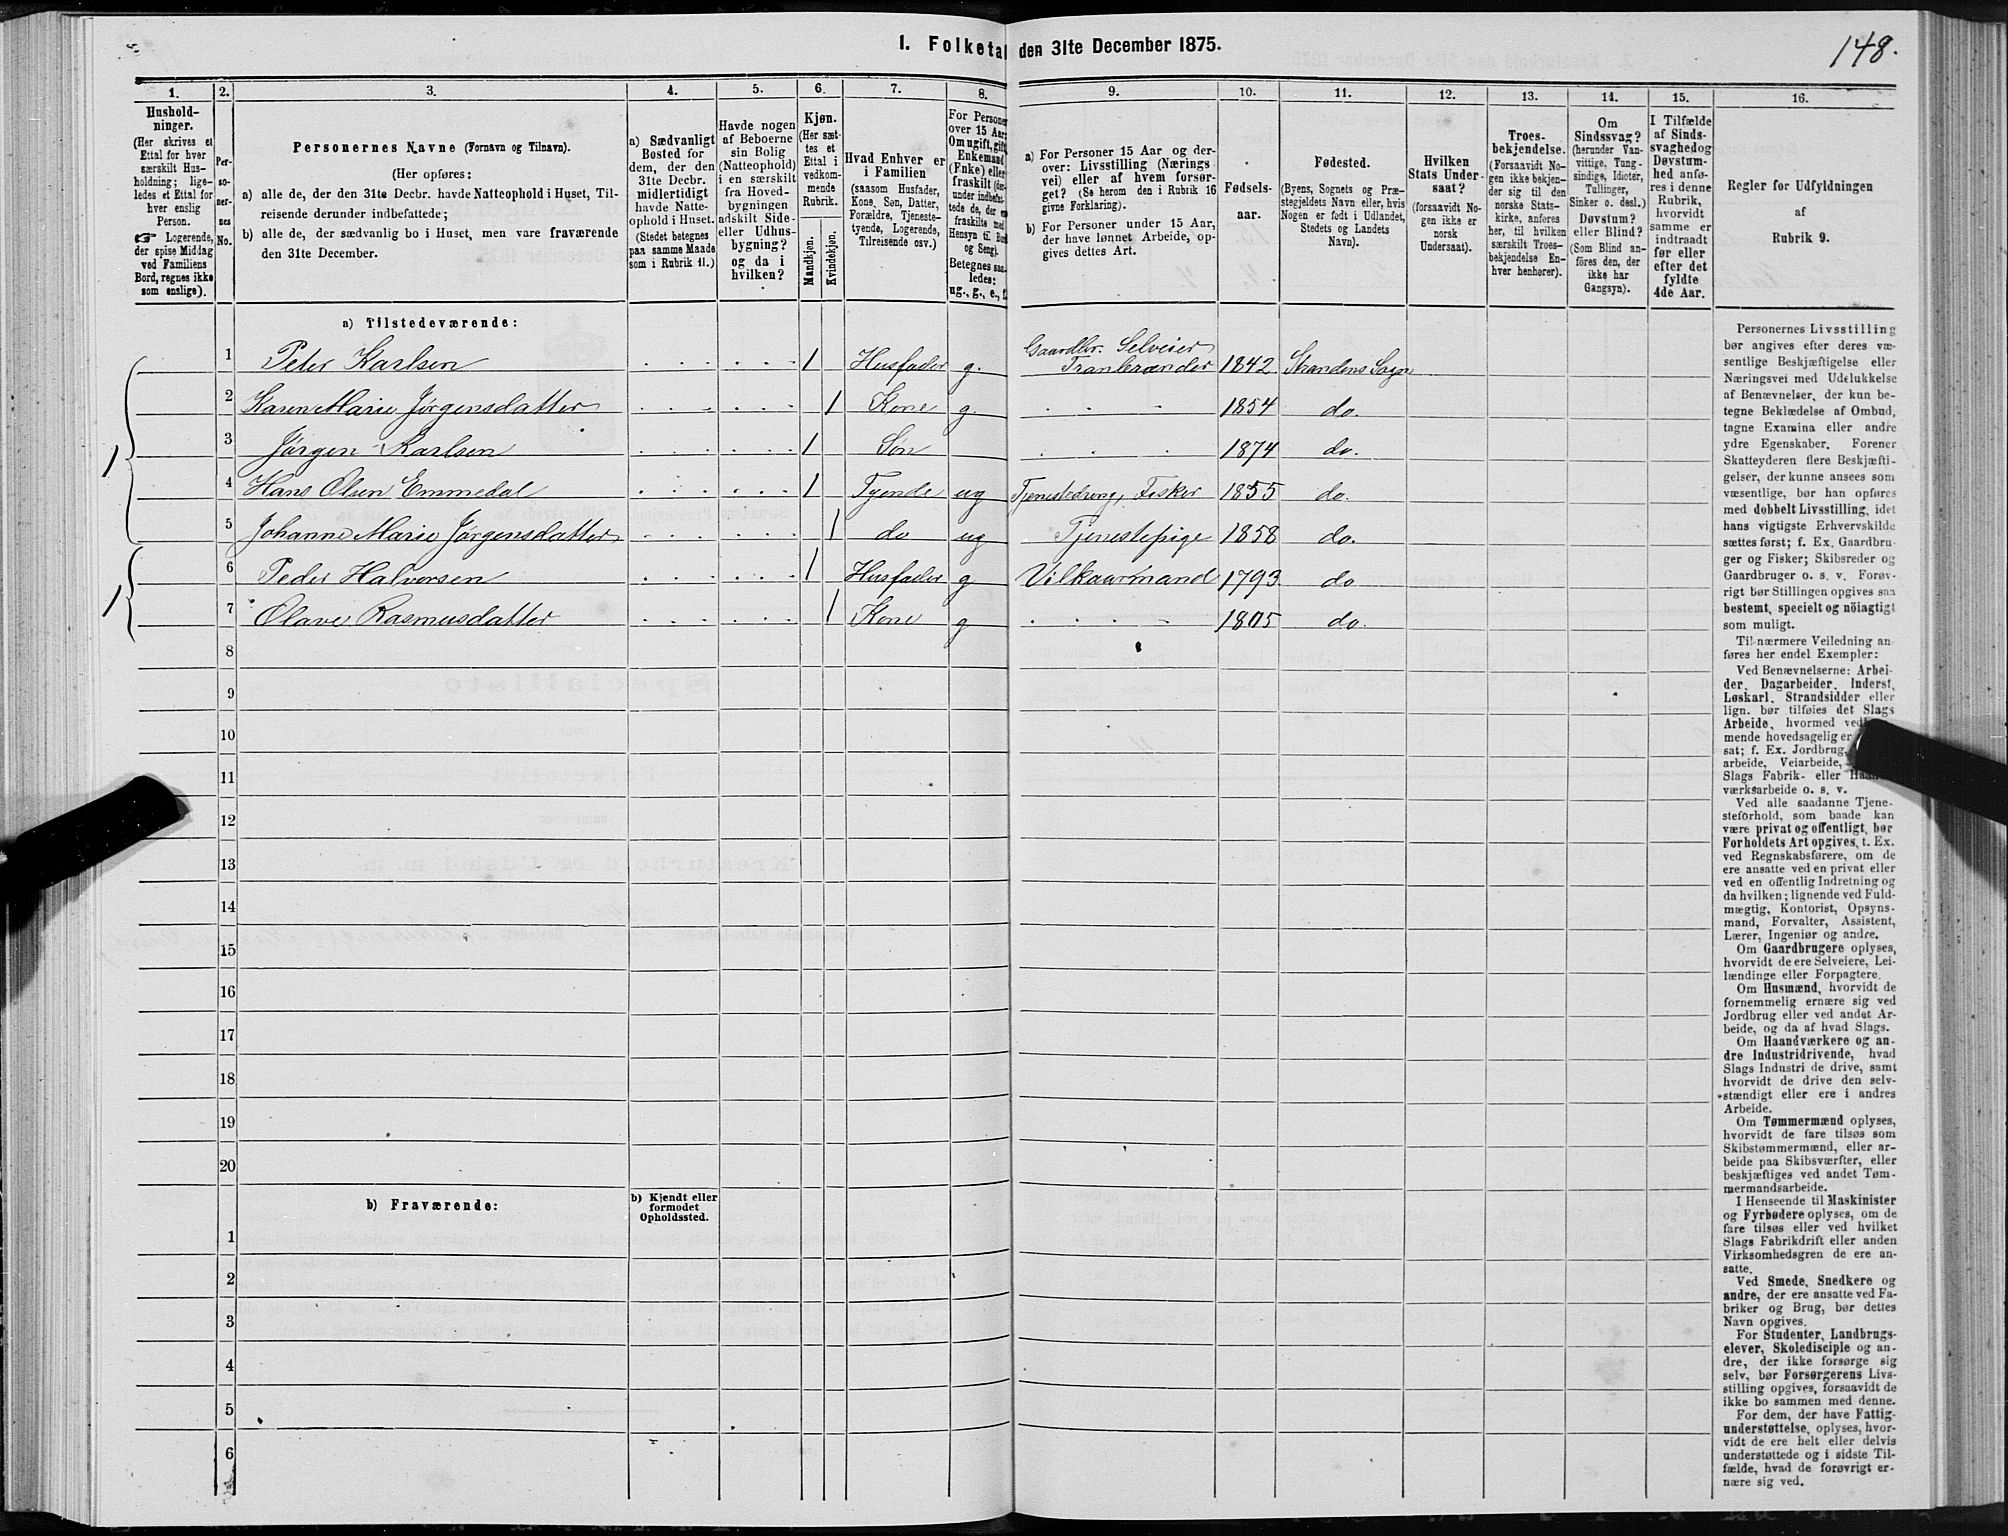 148.
I. Folketal den 31te December 1875.
1.
2.
3.
4.
5.
6.
7.
8.
9.
10.
11.
12.
13.
14.
15.
16.
Hushold-
ninger.
(Her skrives et
Ettal for hver
særskilt Hus-
holdning; lige-
ledes et Ettal for
hver enslig
Person.
☞ Logerende,
der spise Middag
ved Familiens
Bord, regnes ikke
som enslige).
Per-
so-
ner-
nes
No.
Personernes Navne (Fornavn og Tilnavn).
(Her opføres:
a) alle de, der den 31te Decbr. havde Natteophold i Huset, Til-
reisende derunder indbefattede;
b) alle de, der sædvanlig bo i Huset, men vare fraværende
den 31te December.
a) Sædvanligt
Bosted for
dem, der den
31te Decbr.
midlertidigt
havde Natte-
ophold i Huset.
(Stedet betegnes
paa samme Maade
som i Rubrik 11.)
Havde nogen
af Beboerne
sin Bolig
(Natteophold)
i en særskilt
fra Hoved-
bygningen
adskilt Side-
eller Udhus-
bygning?
og da i
hvilken?
Kjøn.
(Her sæt-
tes et
Ettal i
vedkom-
mende
Rubrik.
Mandkjøn.
Kvindekjøn.
Hvad Enhver er
i Familien
(saasom Husfader,
Kone, Søn, Datter,
Forældre, Tjeneste-
tyende, Logerende,
Tilreisende osv.)
For Personer
over 15 Aar:
Om ugift, gift,
Enkemand
(Enke) eller
fraskilt (der-
under indbefat-
tede de, der ere
fraskilte med
Hensyn til Bord
og Seng).
Betegnes saa-
ledes:
ug., g., e., f.
a) For Personer 15 Aar og der-
over: Livsstilling (Nærings
vei) eller af hvem forsør-
get? (Se herom den i Rubrik 16
givne Forklaring).
b) For Personer under 15 Aar,
der have lønnet Arbeide, op-
gives dettes Art.
Fødsels-
aar.
Fødested.
(Byens, Sognets og Præ-
stegjeldets Navn eller, hvis
Nogen er født i Udlandet,
Stedets og Landets
Navn).
Hvilken
Stats Under-
saat?
(forsaavidt No-
gen ikke er
norsk
Undersaat).
Troes-
bekjendelse.
(Forsaavidt No-
gen ikke bekjen-
der sig til den
norske Stats-
kirke, anføres
her, til hvilken
særskilt Troes-
bekjendelse En-
hver henhører).
Om
Sindssvag?
(herunder Van-
vittige, Tung-
sindige, Idioter,
Tullinger,
Sinker o. desl.)
Døvstum?
eller Blind?
(Som Blind an-
føres den, der
ikke har
Gangsyn).
I Tilfælde
af Sinds-
svaghed og
Døvstum-
hed anfø-
res i denne
Rubrik,
hvorvidt
samme er
indtraadt
før eller
efter det
fyldte
4de Aar.
Regler for Udfyldningen
af
Rubrik 9.
a) Tilstedeværende:
1 Peter Karlsen 1 Husfader g. Gaardbr. Selveier Tranbrænder 1842 Strandens Sogn
2 Karen Marie Jørgensdatter 1 Kone g. 1854 do.
3 Jørgen Karlsen 1 Søn 1874 do.
4 Hans Olsen Emmedal 1 Tyende ug Tjenestedreng, Fisker 1855 do.
5 Johanne Marie Jørgensdatter 1 do ug Tjenestepige 1858 do.
6 Peder Halvorsen 1 Husfader g Vilkaarmand 1793 do.
7 Olave Rasmusdatter 1 Kone g 1805 do.
1
1
8
9
10
11
12
13
14
15
16
17
18
19
20
b) Fraværende:
b) Kjendt eller
formodet
Opholdssted.
1
2
3
4
5
6
Personernes Livsstilling
bør angives efter deres væ-
sentlige Beskjæftigelse eller
Næringsvei med Udelukkelse
af Benævnelser, der kun be-
tegne Beklædelse af Ombud,
tagne Examina eller andre
ydre Egenskaber. Forener
Skatteyderen flere Beskjæfti-
gelser, der kunne ansees som
væsentlige, bør han opføres
med dobbelt Livsstilling, idet
hans vigtigste Erhvervskilde
sættes først; f. Ex. Gaardbru-
ger og Fisker; Skibsreder og
Gaardbruger o. s. v. Forøv-
rigt bør Stillingen opgives saa
bestemt, specielt og nöiagtigt
som muligt.
Til nærmere Veiledning an-
føres her endel Exempler:
Ved Benævnelserne: Arbei-
der, Dagarbeider, Inderst,
Løskarl, Strandsidder eller
lign. bør tilføies det Slags
Arbeide, hvormed ved-
mende hovedsagelig er
sat; f. Ex. Jordbrug,
arbeide, Veiarbeide,
Slags Fabrik- eller Haand-
værksarbeide o. s. v.
Ved alle saadanne Tjene-
steforhold, som baade kan
være privat og offentligt, bør
Forholdets Art opgives, t. Ex.
ved Regnskabsførere, om de
ere ansatte ved en privat eller
ved en offentlig Indretning og
da hvilken; lignende ved Fuld-
mægtig, Kontorist, Opsyns-
mand, Forvalter, Assistent,
Lærer, Ingeniør og andre.
Om Gaardbrugere oplyses,
hvorvidt de ere Selveiere, Lei-
lændinge eller Forpagtere.
Om Husmænd, hvorvidt de
fornemmelig ernære sig ved
Jordbrug eller ved andet Ar-
beide, og da af hvad Slags.
Om Haandværkere og an-
dre Industridrivende, hvad
Slags Industri de drive, samt
hvorvidt de drive den selv-
stændigt eller ere i andres
Arbeide.
Om Tømmermænd oplyses,
hvorvidt de fare tilsøs som
Skibstømmermænd, eller ar-
beide paa Skibsværfter, eller
beskjæftiges ved andet Tøm-
mermandsarbeide.
I Henseende til Maskinister
og Fyrbødere oplyses, om de
fare tilsøs eller ved hvilket
Slags Fabrikdrift eller anden
Virksomhedsgren de ere an-
satte.
Ved Smede, Snedkere og
andre, der ere ansatte ved Fa-
briker og Brug, bør dettes
Navn opgives.
For Studenter, Landbrugs-
elever, Skoledisciple og an-
dre, der ikke forsørge sig
selv, bør Forsørgerens Livs-
stilling opgives, forsaavidt de
ikke bo sammen med denne.
For dem, der have Fattig-
understøttelse, oplyses, hvor-
vidt de ere helt eller delvis
understøttede og i sidste Til-
fælde, hvad de forøvrigt er-
nære sig ved.